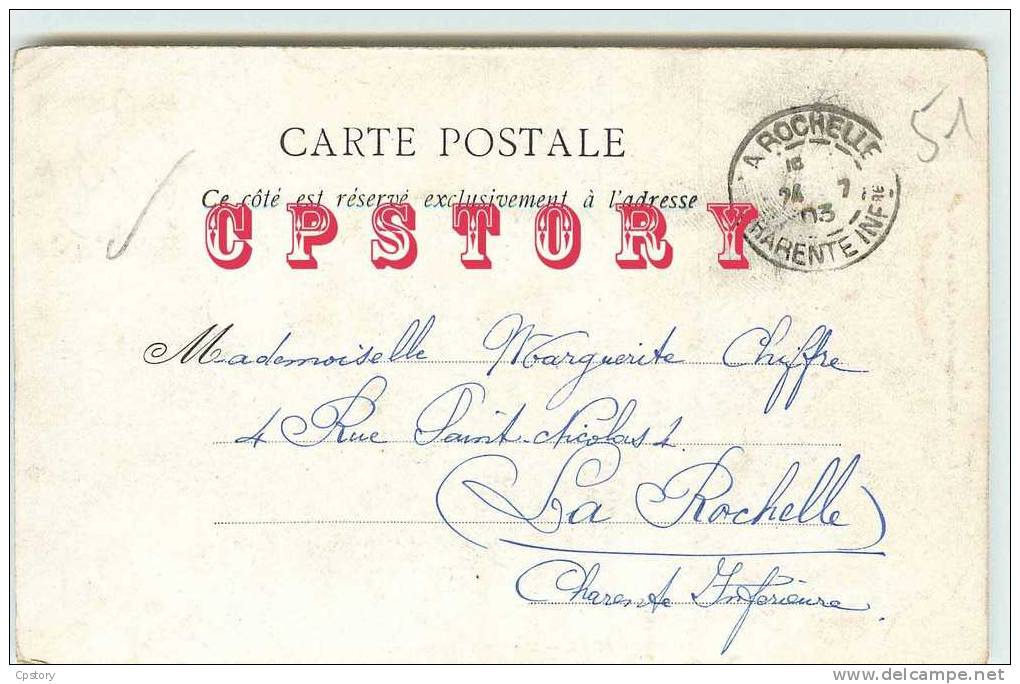 CARTE POSTALE
Ce côté est réservé exclusivement à l'adresse
CPSTORY
LA ROCHELLE
24 7
03
CHARENTE INFRE
51
Mademoiselle Marguerite Chiffre
4 Rue Saint-Nicolas 4
(La Rochelle)
Charente Inférieure
Cpstory
delcampe.net